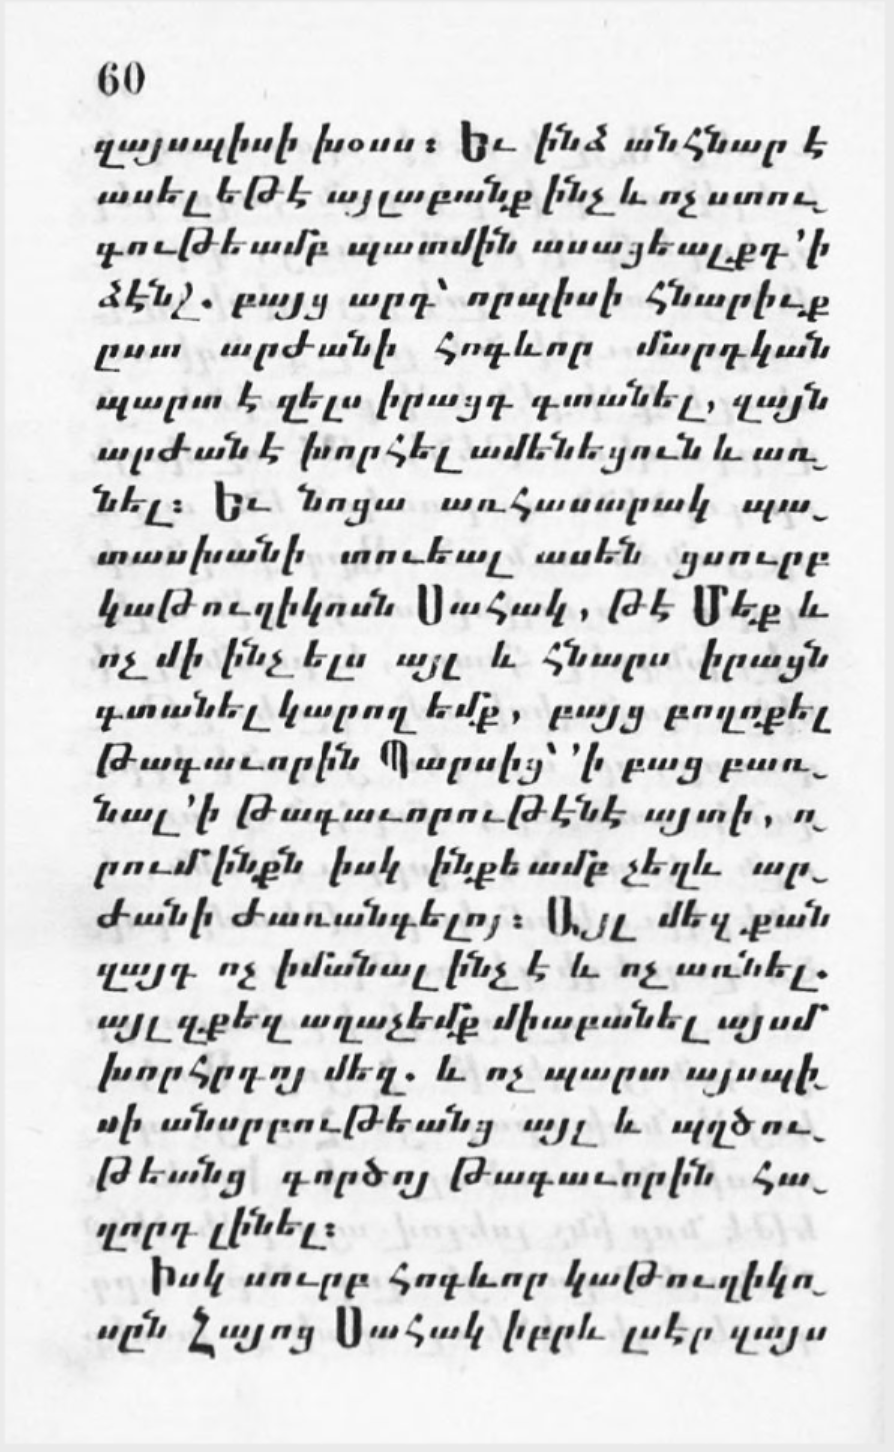 60
զայսպիսի խօսս։ Եւ ինձ անհնար է
ասել եթէ այլաբանք ինչ և ոչ ստու֊
գութեամբ պատմին ասացեալքդ ՚ի
ձէնջ. բայց արդ՝ որպիսի հնարիւք
ըստ արժանի հոգևոր մարդկան
պարտ է զելս իրացդ գտանել, զայն
արժան է խորհել ամենեցուն և առ֊
նել։ Եւ նոցա առհասարակ պա֊
տասխանի տուեալ ասեն ցսուրբ
կաթուղիկոսն Սահակ, թէ Մեք և
ոչ մի ինչ ելս այլ և հնարս իրացն
գտանել կարող եմք, բայց բողոքել
թագաւորին Պարսից՝ ՚ի բաց բառ֊
նալ ՚ի թագաւորութէնէ այտի, ո֊
րում ինքն իսկ ինքեամբ չեղև ար֊
ժանի ժառանգելոյ։ Այլ մեզ քան
զայդ ոչ իմանալ ինչ է և ոչ առնել.
այլ զքեզ աղաչեմք միաբանել այսմ
խորհրդոյ մեղ. և ոչ պարտ այսպի֊
սի անսրբութեանց այլ և պղծու֊
թեանց գործոյ թագաւորին հա֊
ղորդ լինել։
Իսկ սուրբ հոգևոր կաթուղիկո֊
սըն Հայոց Սահակ իբրև լսէր զայս